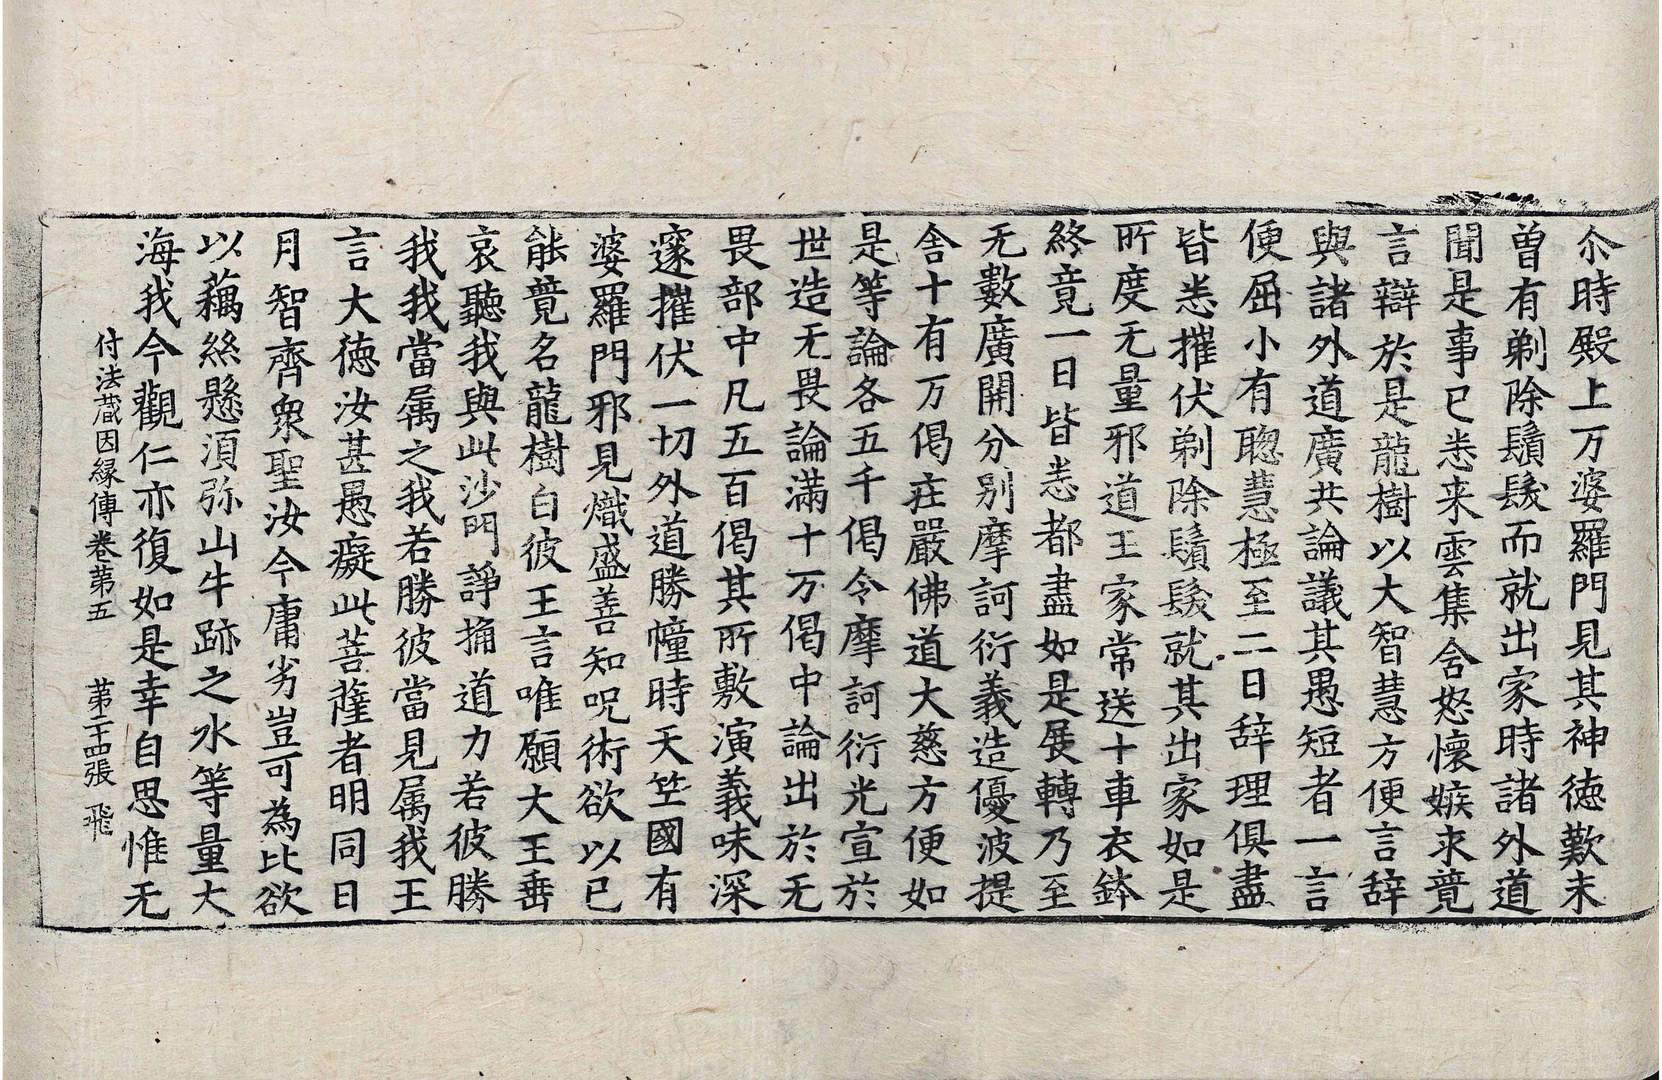 尒時殿上万婆羅門見其神徳歎未
曽有剃除鬚髮而就出家時諸外道
聞是事已悉来雲集含怒懷嫉求竟
言辯於是龍樹以大智慧方便言辞
與諸外道廣共論議其愚短者一言
便屈小有聦慧極至二日辞理俱盡
皆悉摧伏剃除鬚髮就其出家如是
所度无量邪道王家常送十車衣鉢
終竟一日皆悉都盡如是展轉乃至
无數廣開分別摩訶衍義造優波提
舍十有万偈莊嚴佛道大慈方便如
是等論各五千偈令摩訶衍光宣於
世造无畏論滿十万偈中論出於无
畏部中凡五百偈其所敷演義味深
邃摧伏一切外道勝幢時天竺國有
婆羅門邪見熾盛善知呪術欲以已
能竟名龍樹白彼王言唯願大王垂
哀聽我與此沙門諍捔道力若彼勝
我我當属之我若勝彼當見属我王
言大徳汝甚愚癡此菩薩者明同日
月智齊衆聖汝今庸劣豈可為比欲
以藕絲懸湏弥山牛跡之水等量大
海我今觀仁亦復如是幸自思惟无
付法蔵因緣傳卷第五 第二十四張 飛